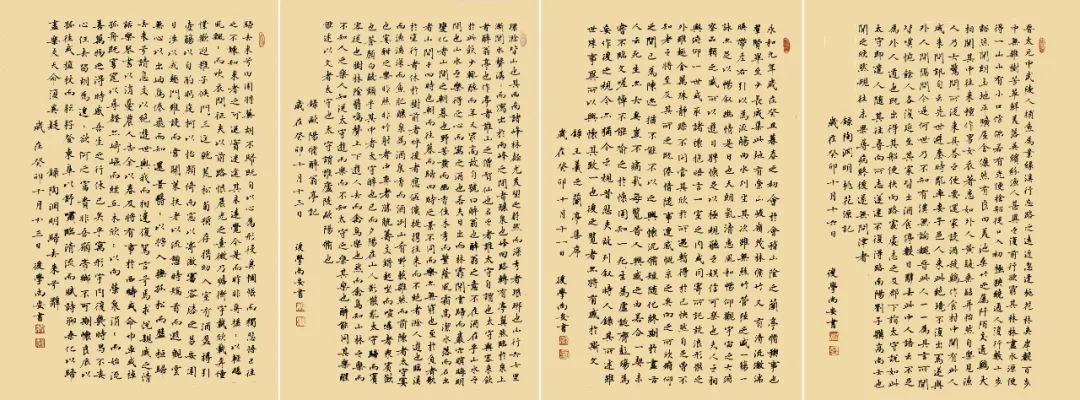 晉太元中武陵人捕魚為業緣溪行忘路之遠近忽逢桃花林夾岸數百步
中無雜樹芳草鮮美落英繽紛漁人甚異之復前行欲窮其林林盡水源便
得一山山有小口彷彿若有光便捨船從口入初極狹纔通人復行數十步
豁然開朗土地平曠屋舍儼然有良田美池桑竹之屬阡陌交通雞犬
相聞其中往來種作男女衣著悉如外人黃髮垂髫並怡然自樂見漁
人乃大驚問所從來具答之便要還家設酒殺雞作食村中聞有此人
咸來問訊自云先世避秦時亂率妻子邑人來此絕境不復出焉遂與
外人間隔問今是何世乃不知有漢無論魏晉此人一一為具言所聞
皆歎惋餘人各復延至其家皆出酒食停數日辭去此中人語云不足
為外人道也既出得其船便扶向路處處誌之及郡下詣太守說如此
太守即遣人隨其往尋向所誌遂迷不復得路南陽劉子驥高尚士也
聞之欣然規往未果尋病終後遂無問津者
錄陶淵明桃花源記
歲在癸卯十月 後學尚安書
永和九年歲在癸丑暮春之初會于會稽山陰之蘭亭修禊事也
群賢畢至少長咸集此地有崇山峻嶺茂林修竹又有清流激湍
映帶左右引以為流觴曲水列坐其次雖無絲竹管弦之盛一觴一
詠亦足以暢敘幽情是日也天朗氣清惠風和暢仰觀宇宙之大俯
察品類之盛所以遊目騁懷足以極視聽之娛信可樂也夫人之相
與俯仰一世或取諸懷抱悟言一室之內或因寄所託放浪形骸之
外雖趣舍萬殊靜躁不同當其欣於所遇暫得於己快然自足不
知老之將至及其所之既倦情隨事遷感慨係之矣向之所欣俯仰
之間已為陳迹猶不能不以之興懷況修短隨化終期於盡古
人云死生亦大矣豈不痛哉每覽昔人興感之由若合一契未
嘗不臨文嗟悼不能喻之於懷固知一死生為虛誕齊彭殤為
妄作後之視今亦猶今之視昔悲夫故列敘時人錄其所述雖
世殊事異所以興懷其致一也後之覽者亦將有感於斯文
錄王羲之蘭亭序
歲在癸卯十月十一日 後學尚安書
環滁皆山也其西南諸峰林壑尤美望之蔚然而深秀者琅琊也山行六七里
漸聞水聲潺潺而瀉出於兩峰之間者釀泉也峰回路轉有亭翼然臨於泉上
者醉翁亭也作亭者誰山之僧智仙也名之者誰太守自謂也太守與客來飲
於此飲少輒醉而年又最高故自號曰醉翁也醉翁之意不在酒在乎山水之
間也山水之樂得之心而寓之酒也若夫日出而林霏開雲歸而巖穴暝晦明
變化者山間之朝暮也野芳發而幽香佳木秀而繁陰風霜高潔水落而石出
者山間之四時也朝而往暮而歸四時之景不同而樂亦無窮也至於負者歌
於塗行者休於樹前者呼後者應傴僂提攜往來而不絕者滁人遊也臨溪
而漁溪深而魚肥釀泉為酒泉香而酒洌山肴野蔌雜然而前陳者太守宴
也宴酣之樂非絲非竹射者中弈者勝觥籌交錯起坐而喧嘩者眾賓歡
也蒼顏白髮頹乎其中者太守醉也已而夕陽在山人影散亂太守歸而賓客
從也樹林陰翳鳴聲上下遊人去而禽鳥樂也然而禽鳥知山林之樂而
不知人之樂人知從太守遊而樂而不知太守之樂其樂也醉能同其樂醒
能述以文者太守也太守謂誰廬陵歐陽脩也
錄歐陽脩醉翁亭記
歲在癸卯十月十三日 後學尚安書
歸去來兮田園將蕪胡不歸既自以心為形役奚惆悵而獨悲悟已往
之不諫知來者之可追實迷途其未遠覺今是而昨非舟遙遙以輕颺
風飄飄而吹衣問征夫以前路恨晨光之熹微乃瞻衡宇載欣載奔僮
僕歡迎稚子候門三逕就荒松菊猶存攜幼入室有酒盈樽引
壺觴以自酌眄庭柯以怡顏倚南窗以寄傲審容膝之易安園
日涉以成趣門雖設而常關策扶老以流憩時矯首而遐觀雲
無心以出岫鳥倦飛而知還景翳翳以將入撫孤松而盤桓歸
去來兮請息交以絕遊世與我而相違復駕言兮焉求悅親戚之情
話樂琴書以消憂農人告余以春及將有事於西疇或命巾車或棹
孤舟既窈窕以尋壑亦崎嶇而經丘木欣欣以向榮泉涓涓而始流
善萬物之得時感吾生之行休已矣乎寓形宇內復幾時曷不委
心任去留胡為乎遑遑欲何之富貴非吾願帝鄉不可期懷良辰以
孤往或植杖而耘耔登東皋以舒嘯臨清流而賦詩聊乘化以歸
盡樂夫天命復奚疑
錄陶淵明歸去來兮辭
歲在癸卯十月十三日 後學尚安書